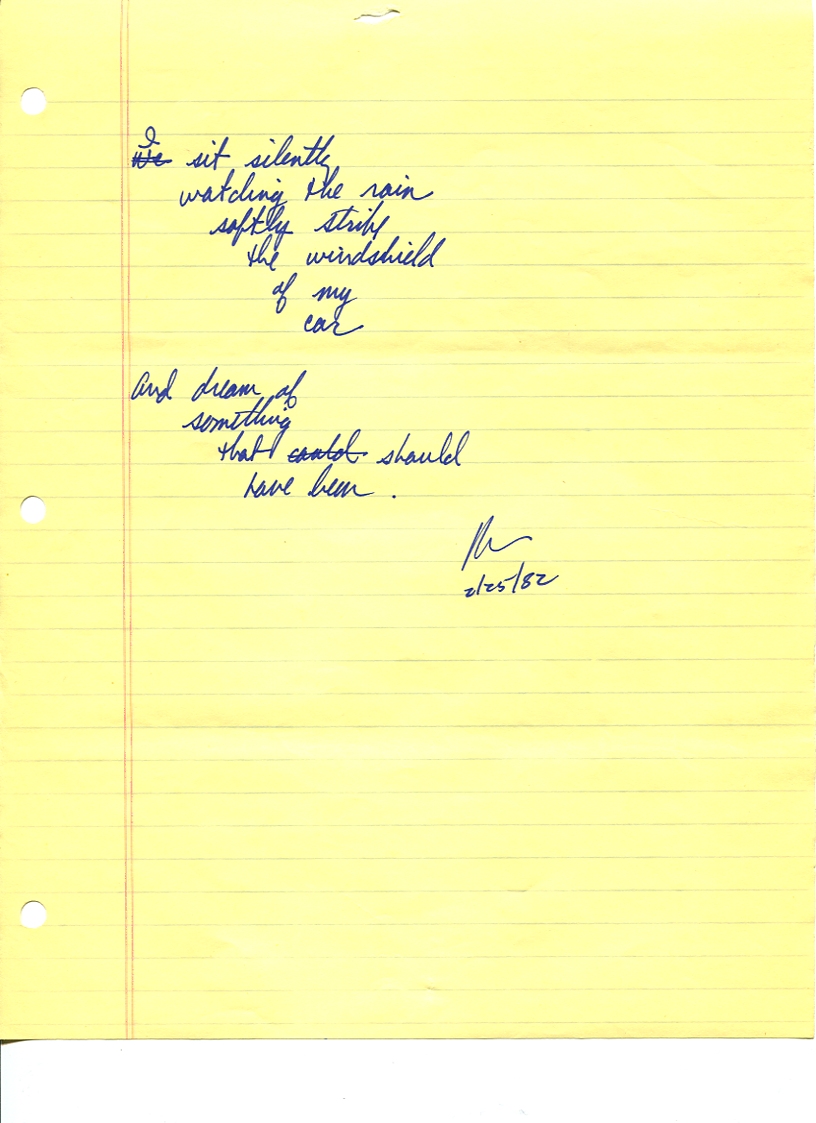 I
We sit silently
watching the rain
softly strike
the windshield
of my
car
And dream of
something
that could should
have been.
2/25/82